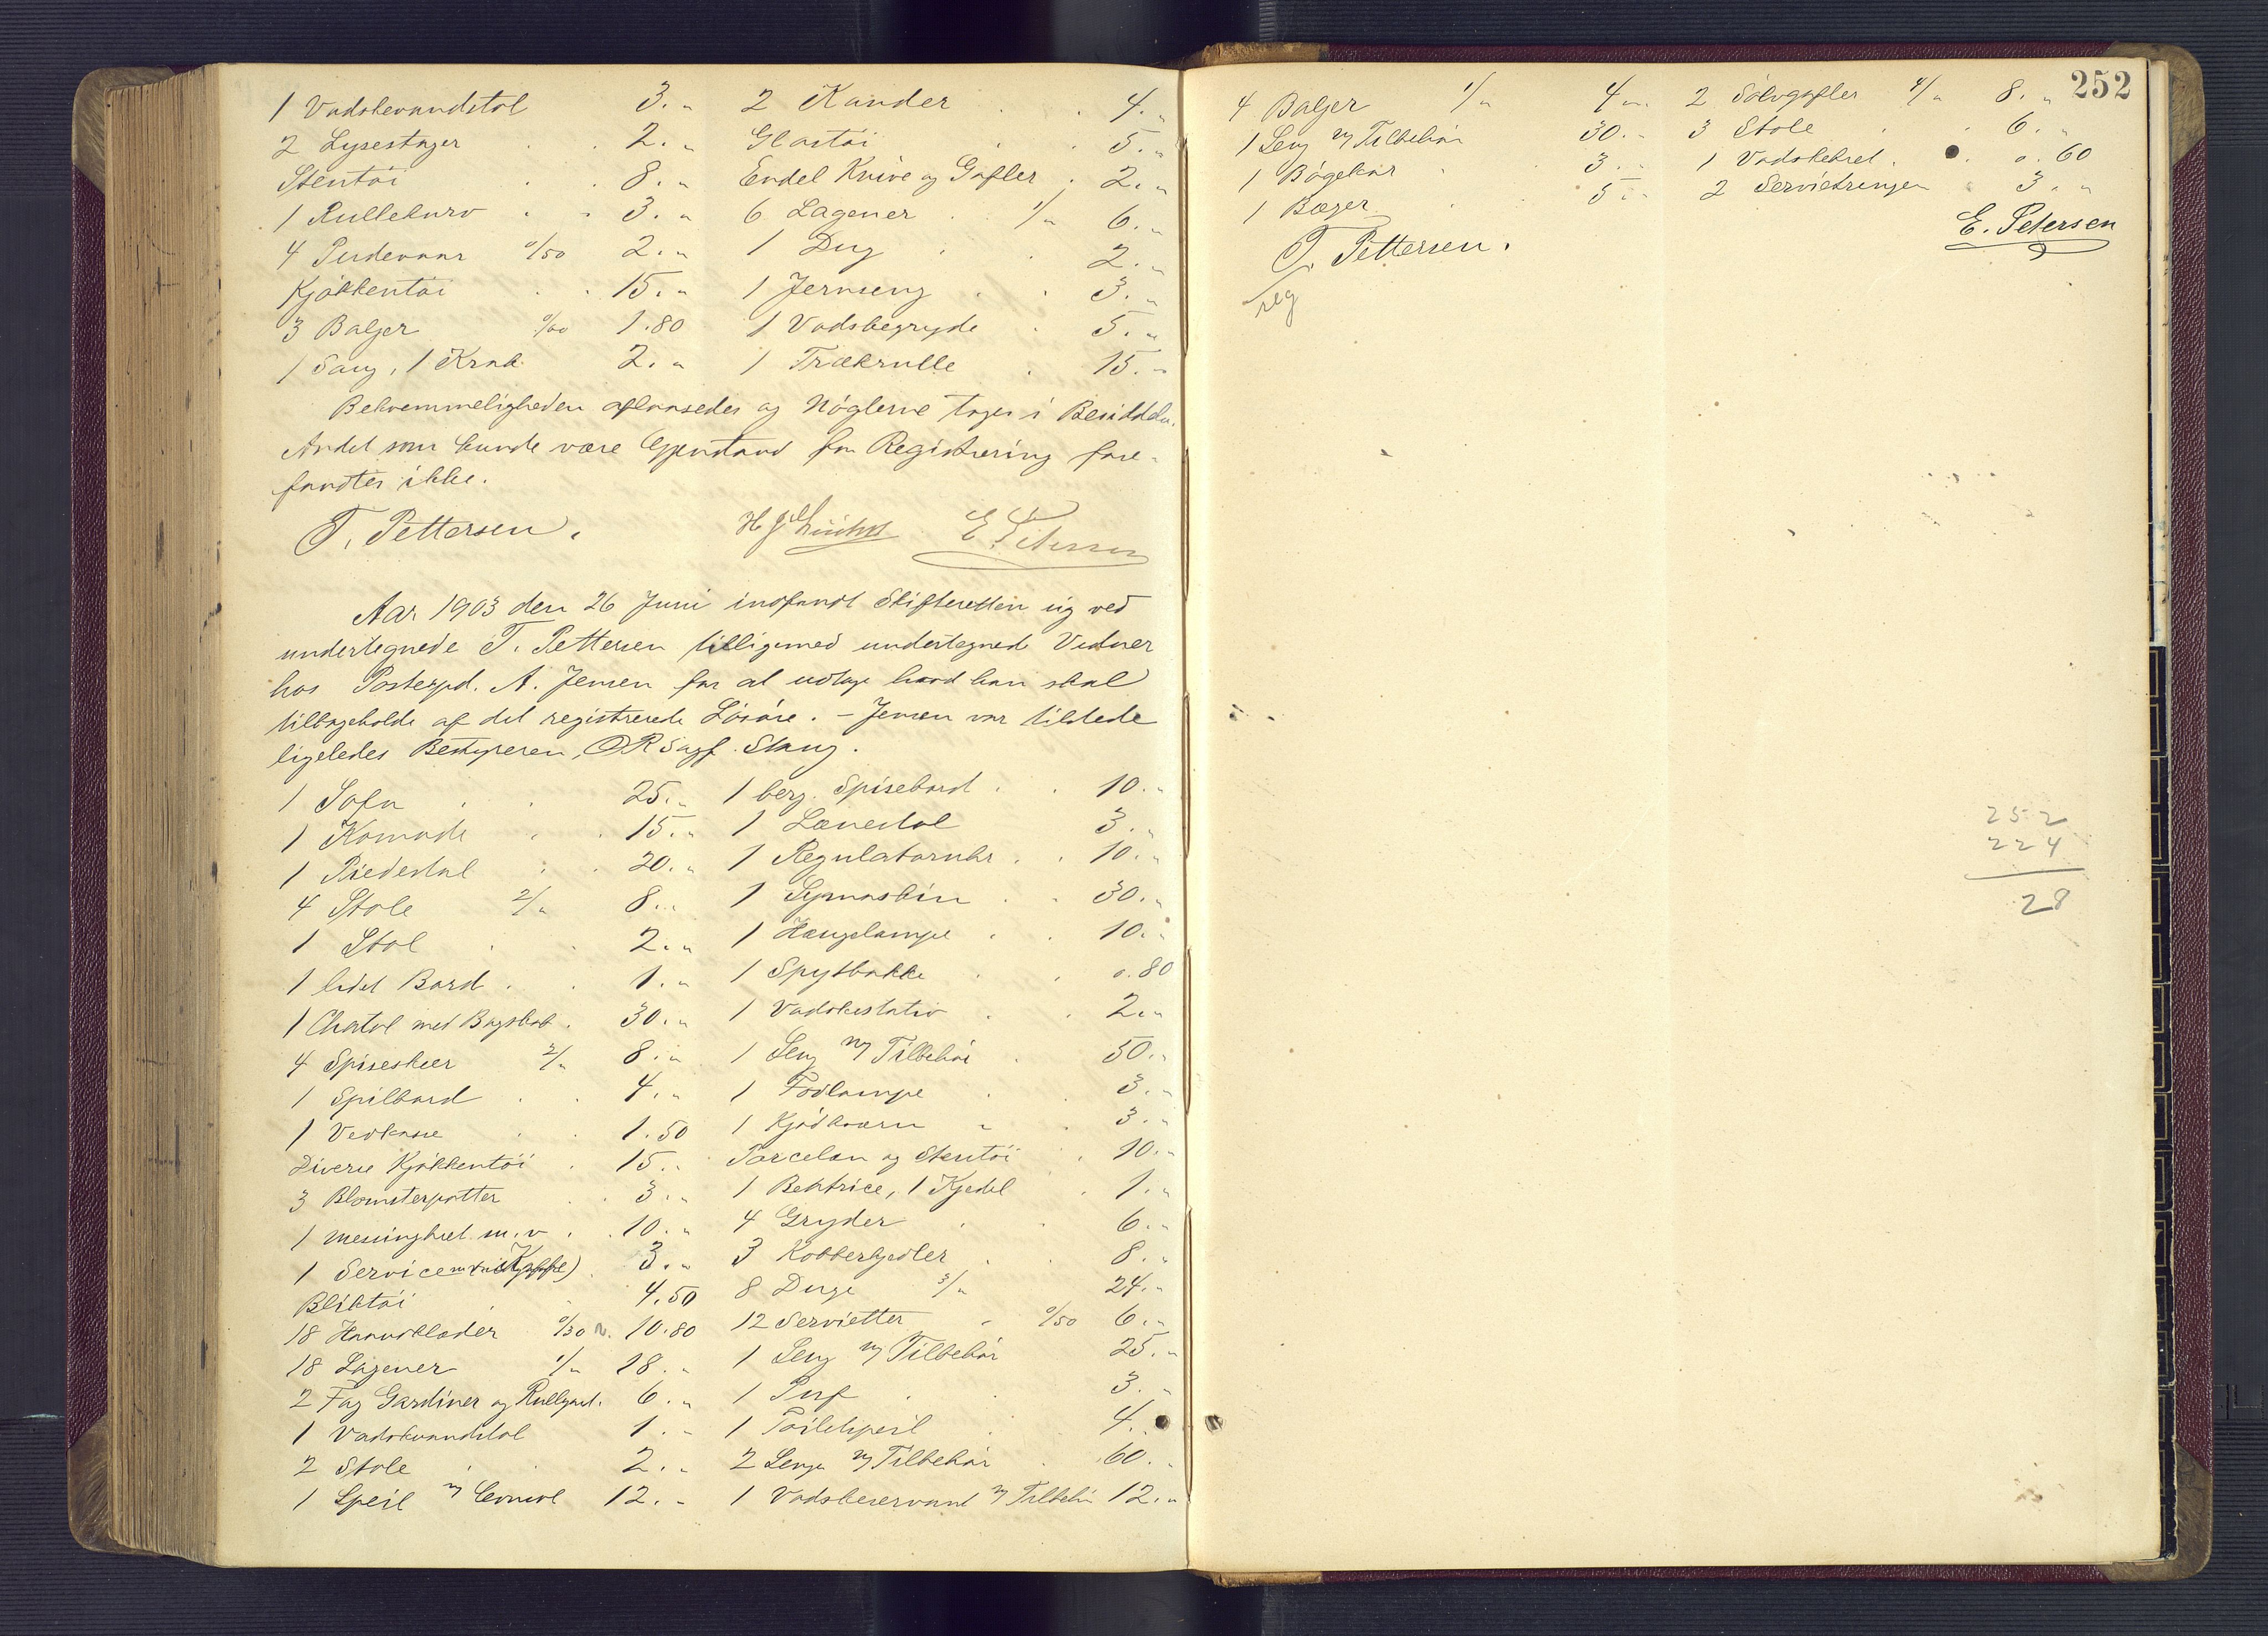 1 Vadskevandstol . 3. „ 2 Kander . . 4. „
2 Lysestager . . 2. „ Glastøi . . 5. „
Stentøi . . 8. „ Endel Knive og Gafler . 2. „
1 Rullekurv . . 3. „ 6 Lagener . 1/„ 6. „
4 Pudevaar 0/50 2. „ 1 Dug . . 2. „
Kjøkkentøi . . 15. „ 1 Jernseng . . 3. „
3 Baljer 0/60 1.80 1 Vadskegryde . 5. „
1 Saug, 1 Krak 2. „ 1 Trækrulle . 15. „
Bekvemmeligheden aflaasedes og Nøglerne toges i Besiddelse.
Andet som kunde være Gjenstand for Registrering fore-
fandtes ikke.
T. Pettersen. E. Petersen
Aar 1903 den 26 Juni indfandt Skifteretten sig ved
undertegnede T. Pettersen tilligemed undertegnede Vidner
hos Postexpd. A. Jensen for at udtage hvad han skal
tilbageholde af det registrerede Løsøre. – Jensen var tilstede
ligeledes Bestyreren, ORSagf. Stang.
1 Sofa . . 25. „ 1 berg. Spisebord . . 10. „
1 Komode . . 15. „ 1 Lænestol 3. „
1 Piedestal . . 20. „ 1 Regulatoruhr . . 10. „
4 Stole 2/„ 8. „ 1 Symaskin . . 30. „
1 Stol . . 2. „ 1 Hængelampe . . 10. „
1 lidet Bord . . 1. „ 1 Spytbakke . . 0.80
1 Chatol med Bogskab . 30. „ 1 Vadskestativ . . 2. „
4 Spiseskeer 2/„ 8. „ 1 Seng m/ Tilbehør . 50. „
1 Spilbord . . 4. „ 1 Fodlampe . . 3. „
1 Vedkasse . . 1.50 1 Kjødkværn „ . 3. „
Diverse Kjøkkentøi . 15. „ Porcelæn og Stentøi . 10. „
3 Blomsterpotter . . 3. „ 1 Bektrice, 1 Kjedel . 1. „
1 Messingbret m. v . . 10. „ 4 Gryder . . 6. „
1 Service . 3. „ 3 Kobberkjedler . . 8. „
Bliktøi . . 4.50 8 Duge 3/„ 24. „
18 Haandklæder 10.80 12 Servietter „ 0/50 6. „
18 Lagener 1/„ 18. „ 1 Seng m/ Tilbehør 25. „
2 Fag Gardiner og Rullgard. 6. „ 1 Puf . . 3. „
1 Vadskvandstol 1. „ 1 Toiletspeil . 4. „
2 Stole . . 2. „ 2 Senge m/ Tilbehør . 60. „
1 Speil m/ Consol 12. „ 1 Vadskeservant m/ Tilbehør 12. „
252
4 Baljer 1/„ 4 „ 2 Sølvgafler 4/„ 8. „
1 Seng m/ Tilbehør 30. „ 3 Stole . . 6. „
1 Bøgekar . . 3. „ 1 Vadskebret . . 0.60
1 Bæger . . 5. „ 2 Servietringe . 3. „
T. Pettersen. E. Petersen
reg
252
224
28